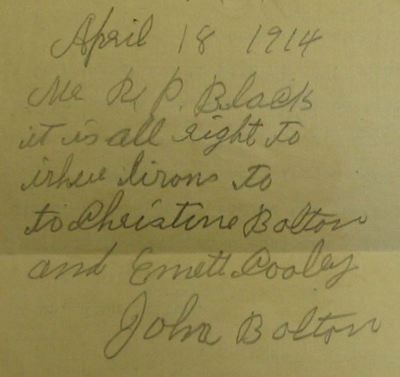 April 18 1914
Mr R P. Black
it is all right to
irhue lirons to
to Christine Bolton
and Emett Cooley
John Bolton